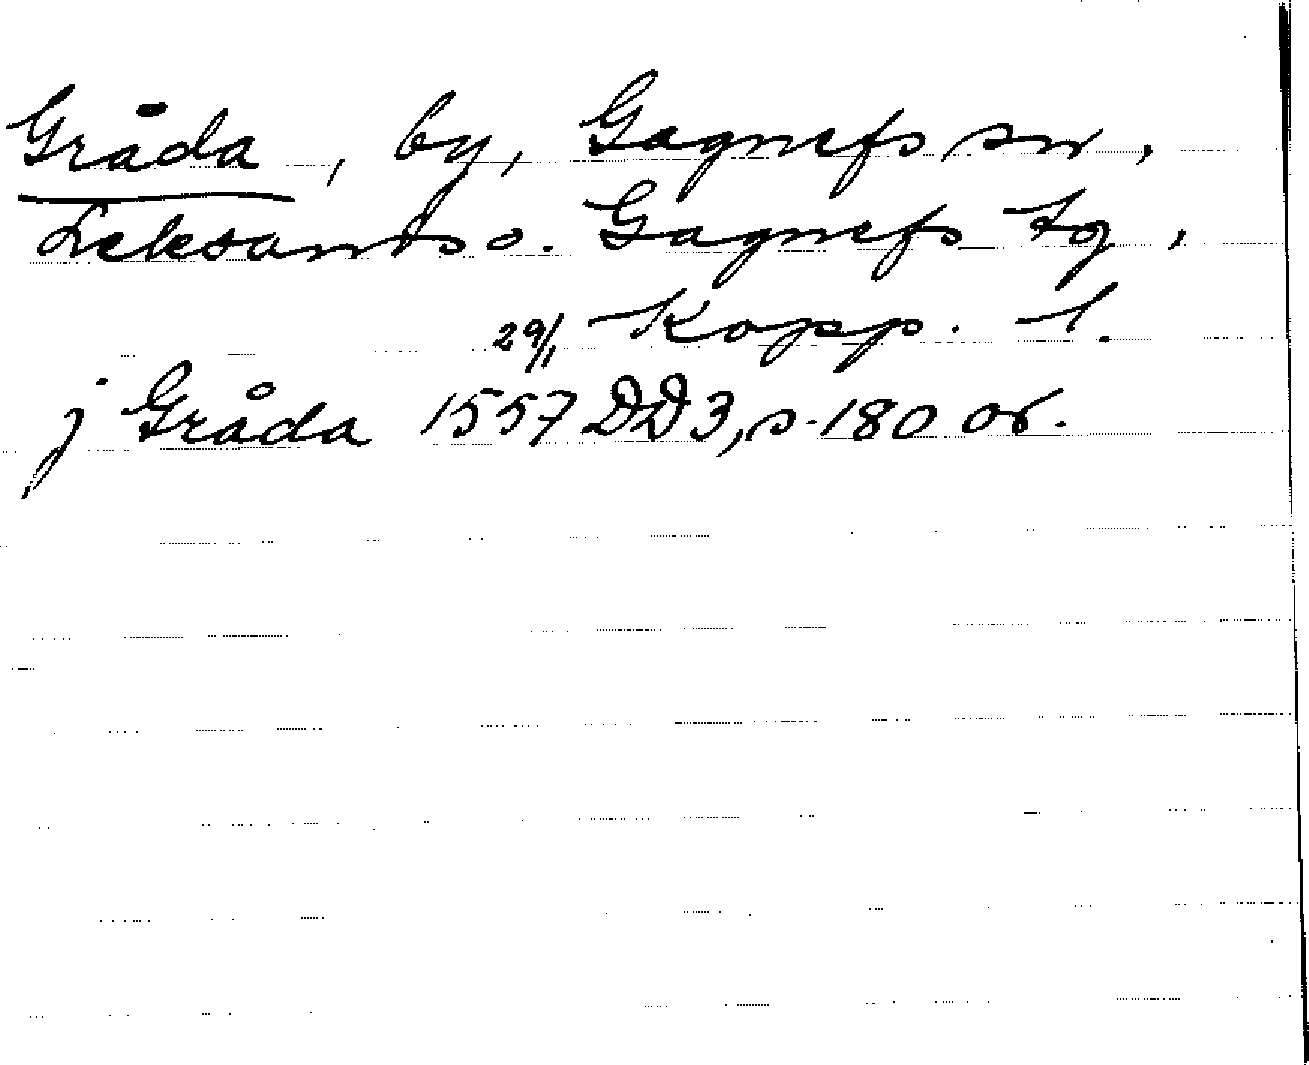 Gråda, by, Gagnefs sn,
Leksands o. Gagnefs tg,
29/1 Kopp. l.
j Gråda 1557 DD 3, s. 180 or.